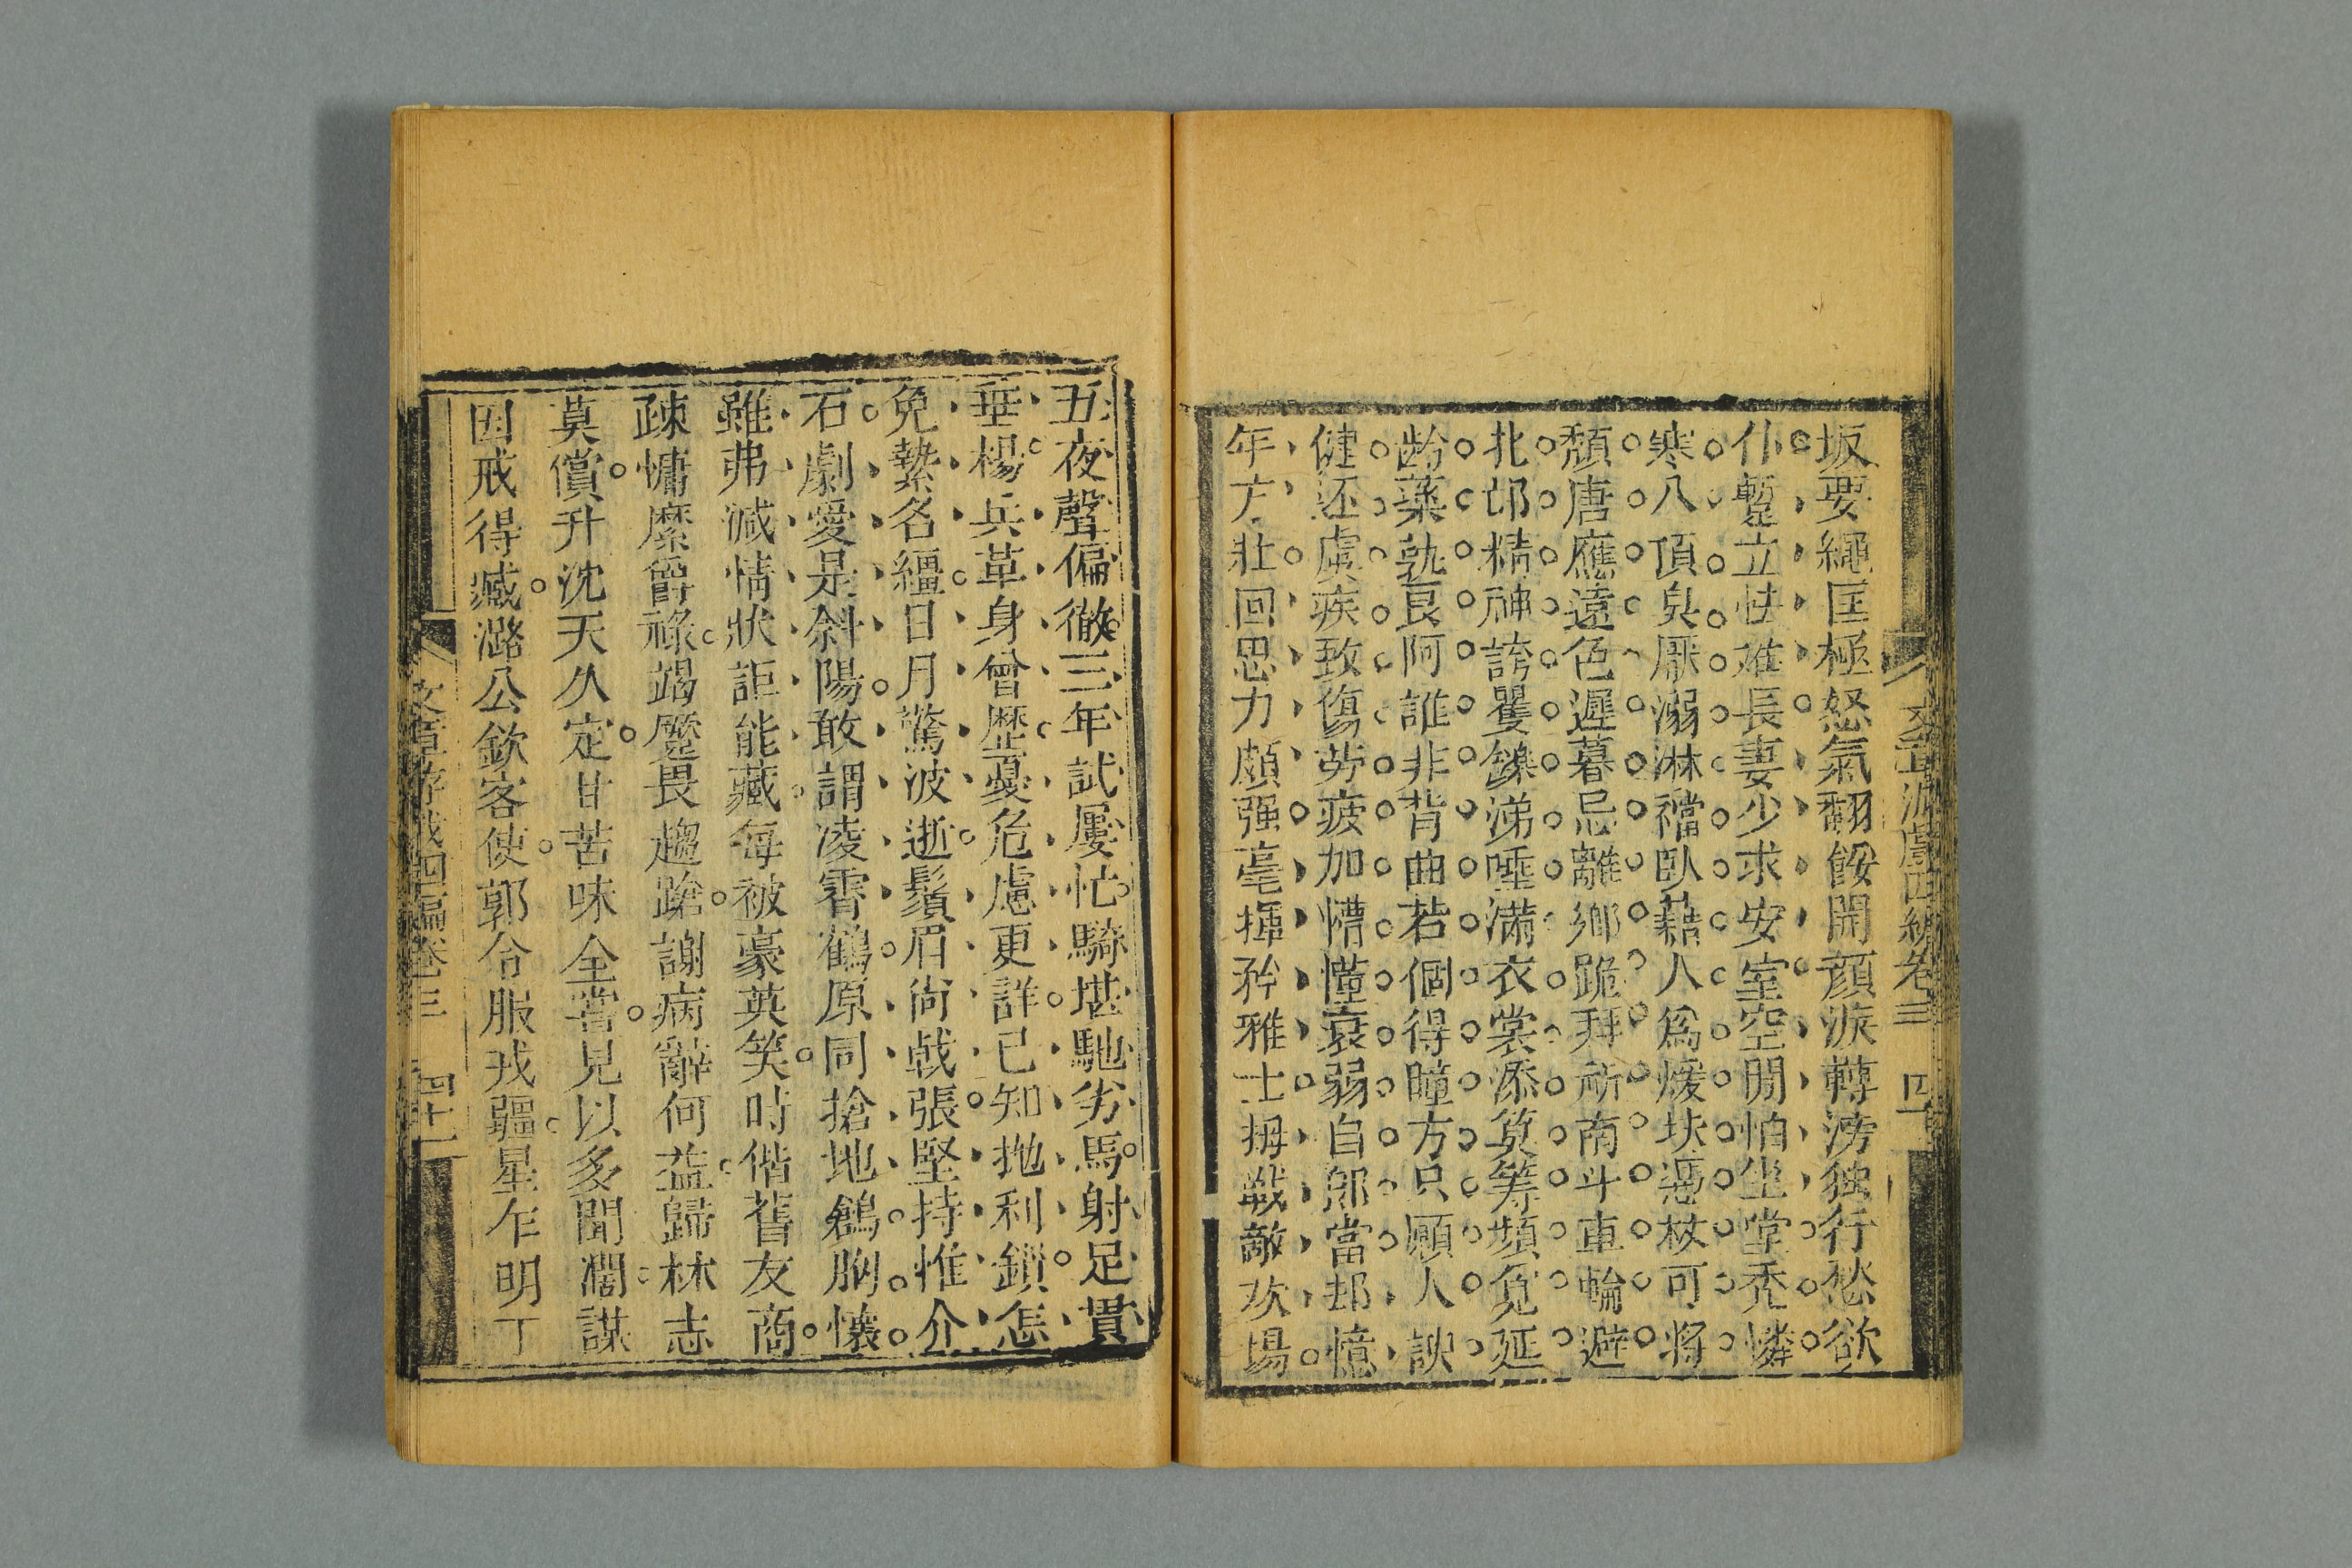 坂要繩匡極怒氣翻餒開顏淚轉滂独行愁欲
仆蹔立怯难長妻少求安室空閒怕坐堂禿憐
寒八頂臭厭溺淋襠臥藉人爲煖坎憑杖可將
頽唐應遠色遲暮忌離鄉跪拜祈南斗車輪避
北邙精神誇矍鑠涕唾滿衣裳添筭筹頻覓延
齡藥孰良阿誰非背曲若個得瞳方只願人諛
健还虞疾致傷劳疲加懵懂衰弱自郎當却憶
年方壯囘思力頗强毫揮矜雅士拇戰敵欢場
五夜聲偏徹三年試屢忙騎堪馳劣馬射足貫
垂楊兵革身曾歷憂危慮更詳已知抛利鎖怎
免縶名繮日月驚波逝鬚眉尚戟張堅持惟介
石劇愛是斜陽敢謂凌霄鶴原同搶地鶬胸懷
雖弗減情狀詎能藏每被豪英笑时偕舊友商
疎慵縻爵祿蹋蹷畏趨蹌謝病辭何益歸林志
莫償升沈天久定甘苦味全嘗見以多聞濶謀
因戒得臧潞公欽客使郭令服戎疆星乍明丁
文章游戲四編卷三 四十一